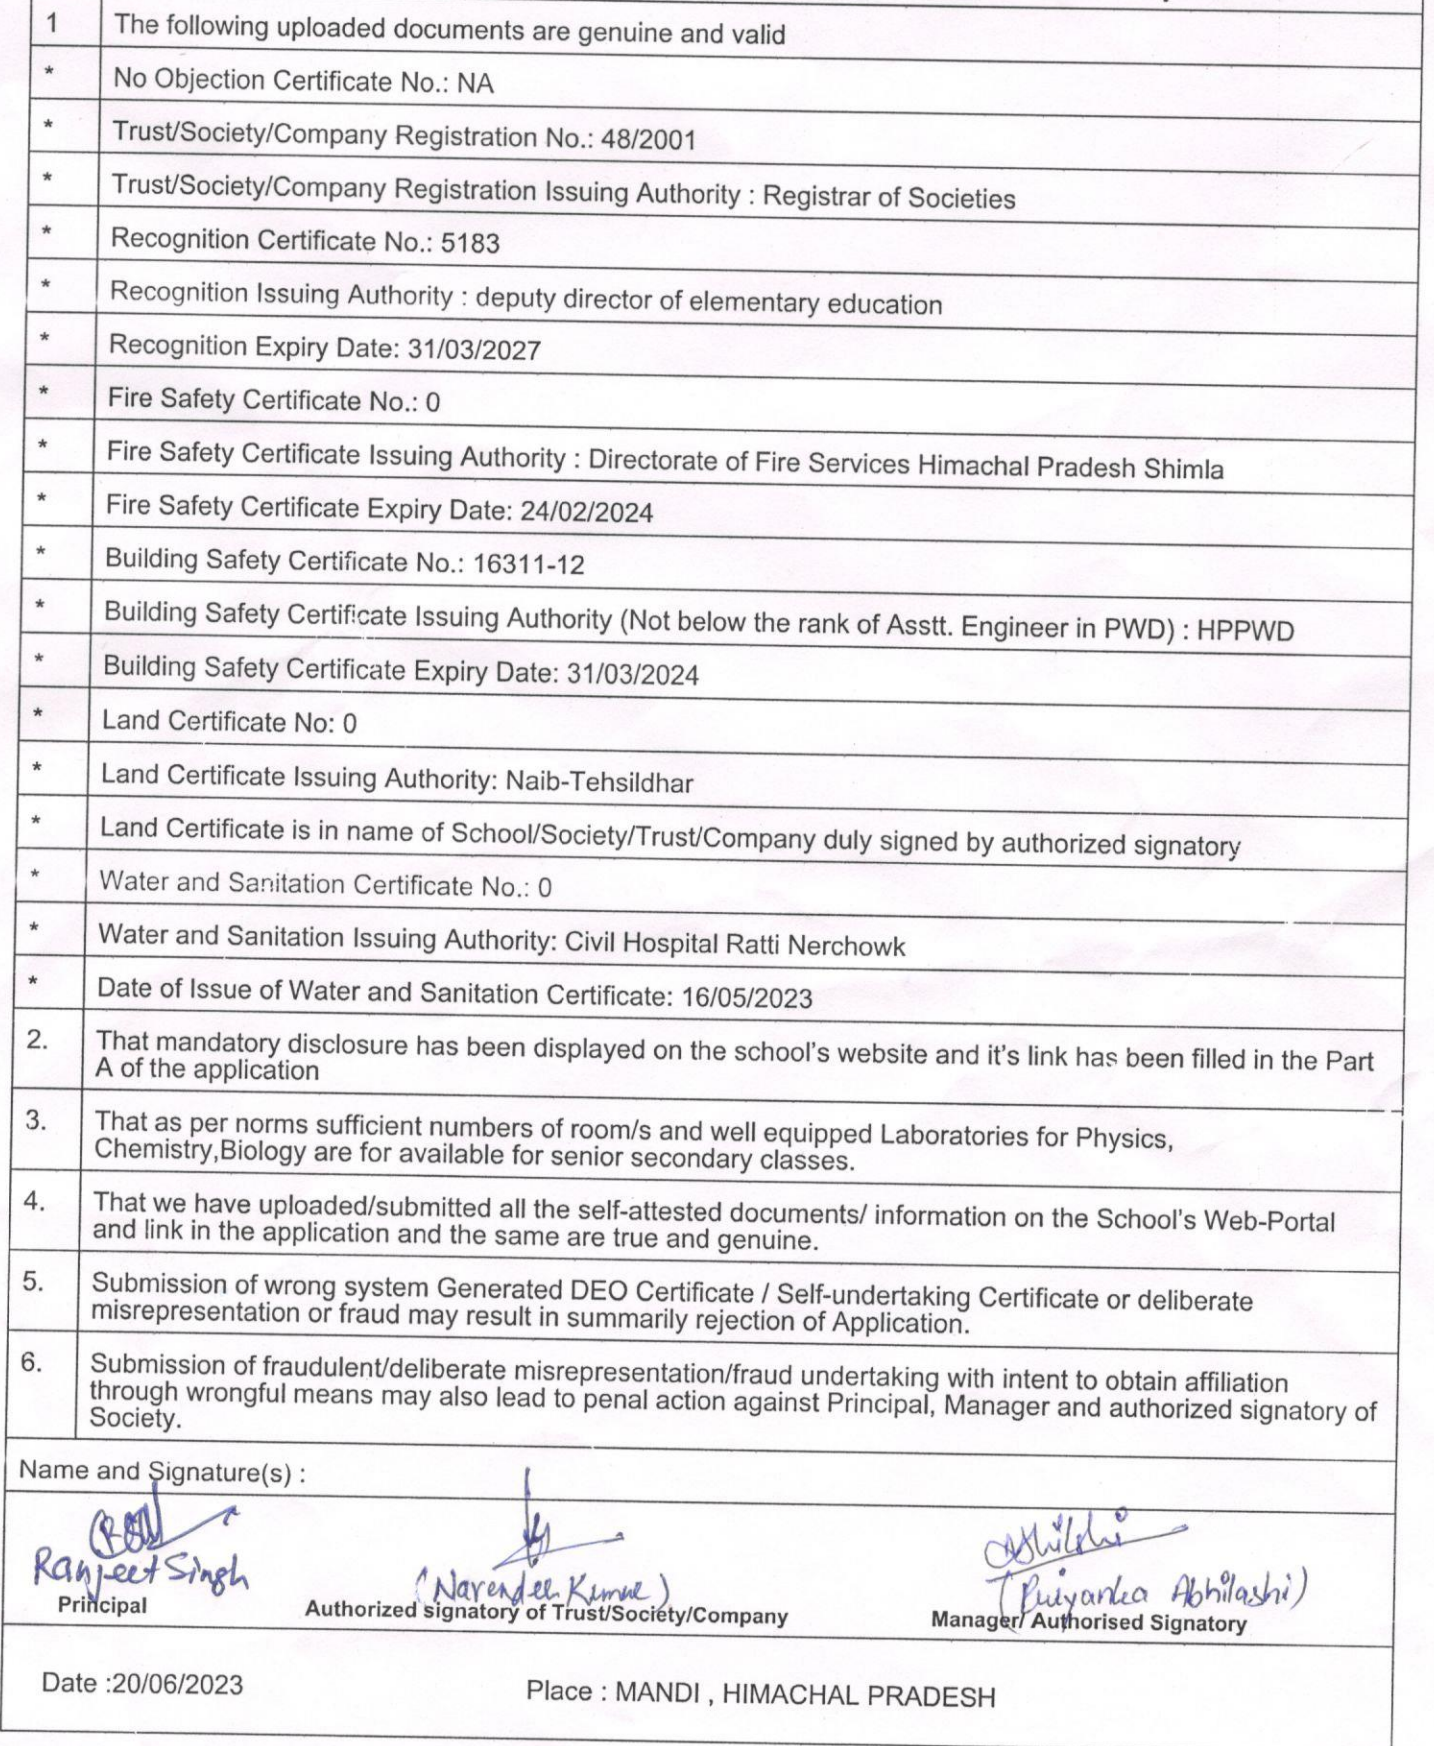 1 The following uploaded documents are genuine and valid
* No Objection Certificate No.: NA
* Trust/Society/Company Registration No.: 48/2001
* Trust/Society/Company Registration Issuing Authority : Registrar of Societies
* Recognition Certificate No.: 5183
* Recognition Issuing Authority : deputy director of elementary education
* Recognition Expiry Date: 31/03/2027
* Fire Safety Certificate No.: 0
* Fire Safety Certificate Issuing Authority : Directorate of Fire Services Himachal Pradesh Shimla
* Fire Safety Certificate Expiry Date: 24/02/2024
* Building Safety Certificate No.: 16311-12
* Building Safety Certificate Issuing Authority (Not below the rank of Asstt. Engineer in PWD) : HPPWD
* Building Safety Certificate Expiry Date: 31/03/2024
* Land Certificate No: 0
* Land Certificate Issuing Authority: Naib-Tehsildhar
* Land Certificate is in name of School/Society/Trust/Company duly signed by authorized signatory
* Water and Sanitation Certificate No.: 0
* Water and Sanitation Issuing Authority: Civil Hospital Ratti Nerchowk
* Date of Issue of Water and Sanitation Certificate: 16/05/2023
2. That mandatory disclosure has been displayed on the school's website and it's link has been filled in the Part
A of the application
3. That as per norms sufficient numbers of room/s and well equipped Laboratories for Physics,
Chemistry,Biology are for available for senior secondary classes.
4. That we have uploaded/submitted all the self-attested documents/ information on the School's Web-Portal
and link in the application and the same are true and genuine.
5. Submission of wrong system Generated DEO Certificate / Self-undertaking Certificate or deliberate
misrepresentation or fraud may result in summarily rejection of Application.
6. Submission of fraudulent/deliberate misrepresentation/fraud undertaking with intent to obtain affiliation
through wrongful means may also lead to penal action against Principal, Manager and authorized signatory of
Society.
Name and Signature(s) :
Ranjeet Singh
Principal
(Narender Kumar)
Authorized signatory of Trust/Society/Company
(Priyanka Abhilashi)
Manager/ Authorised Signatory
Date :20/06/2023 Place : MANDI , HIMACHAL PRADESH